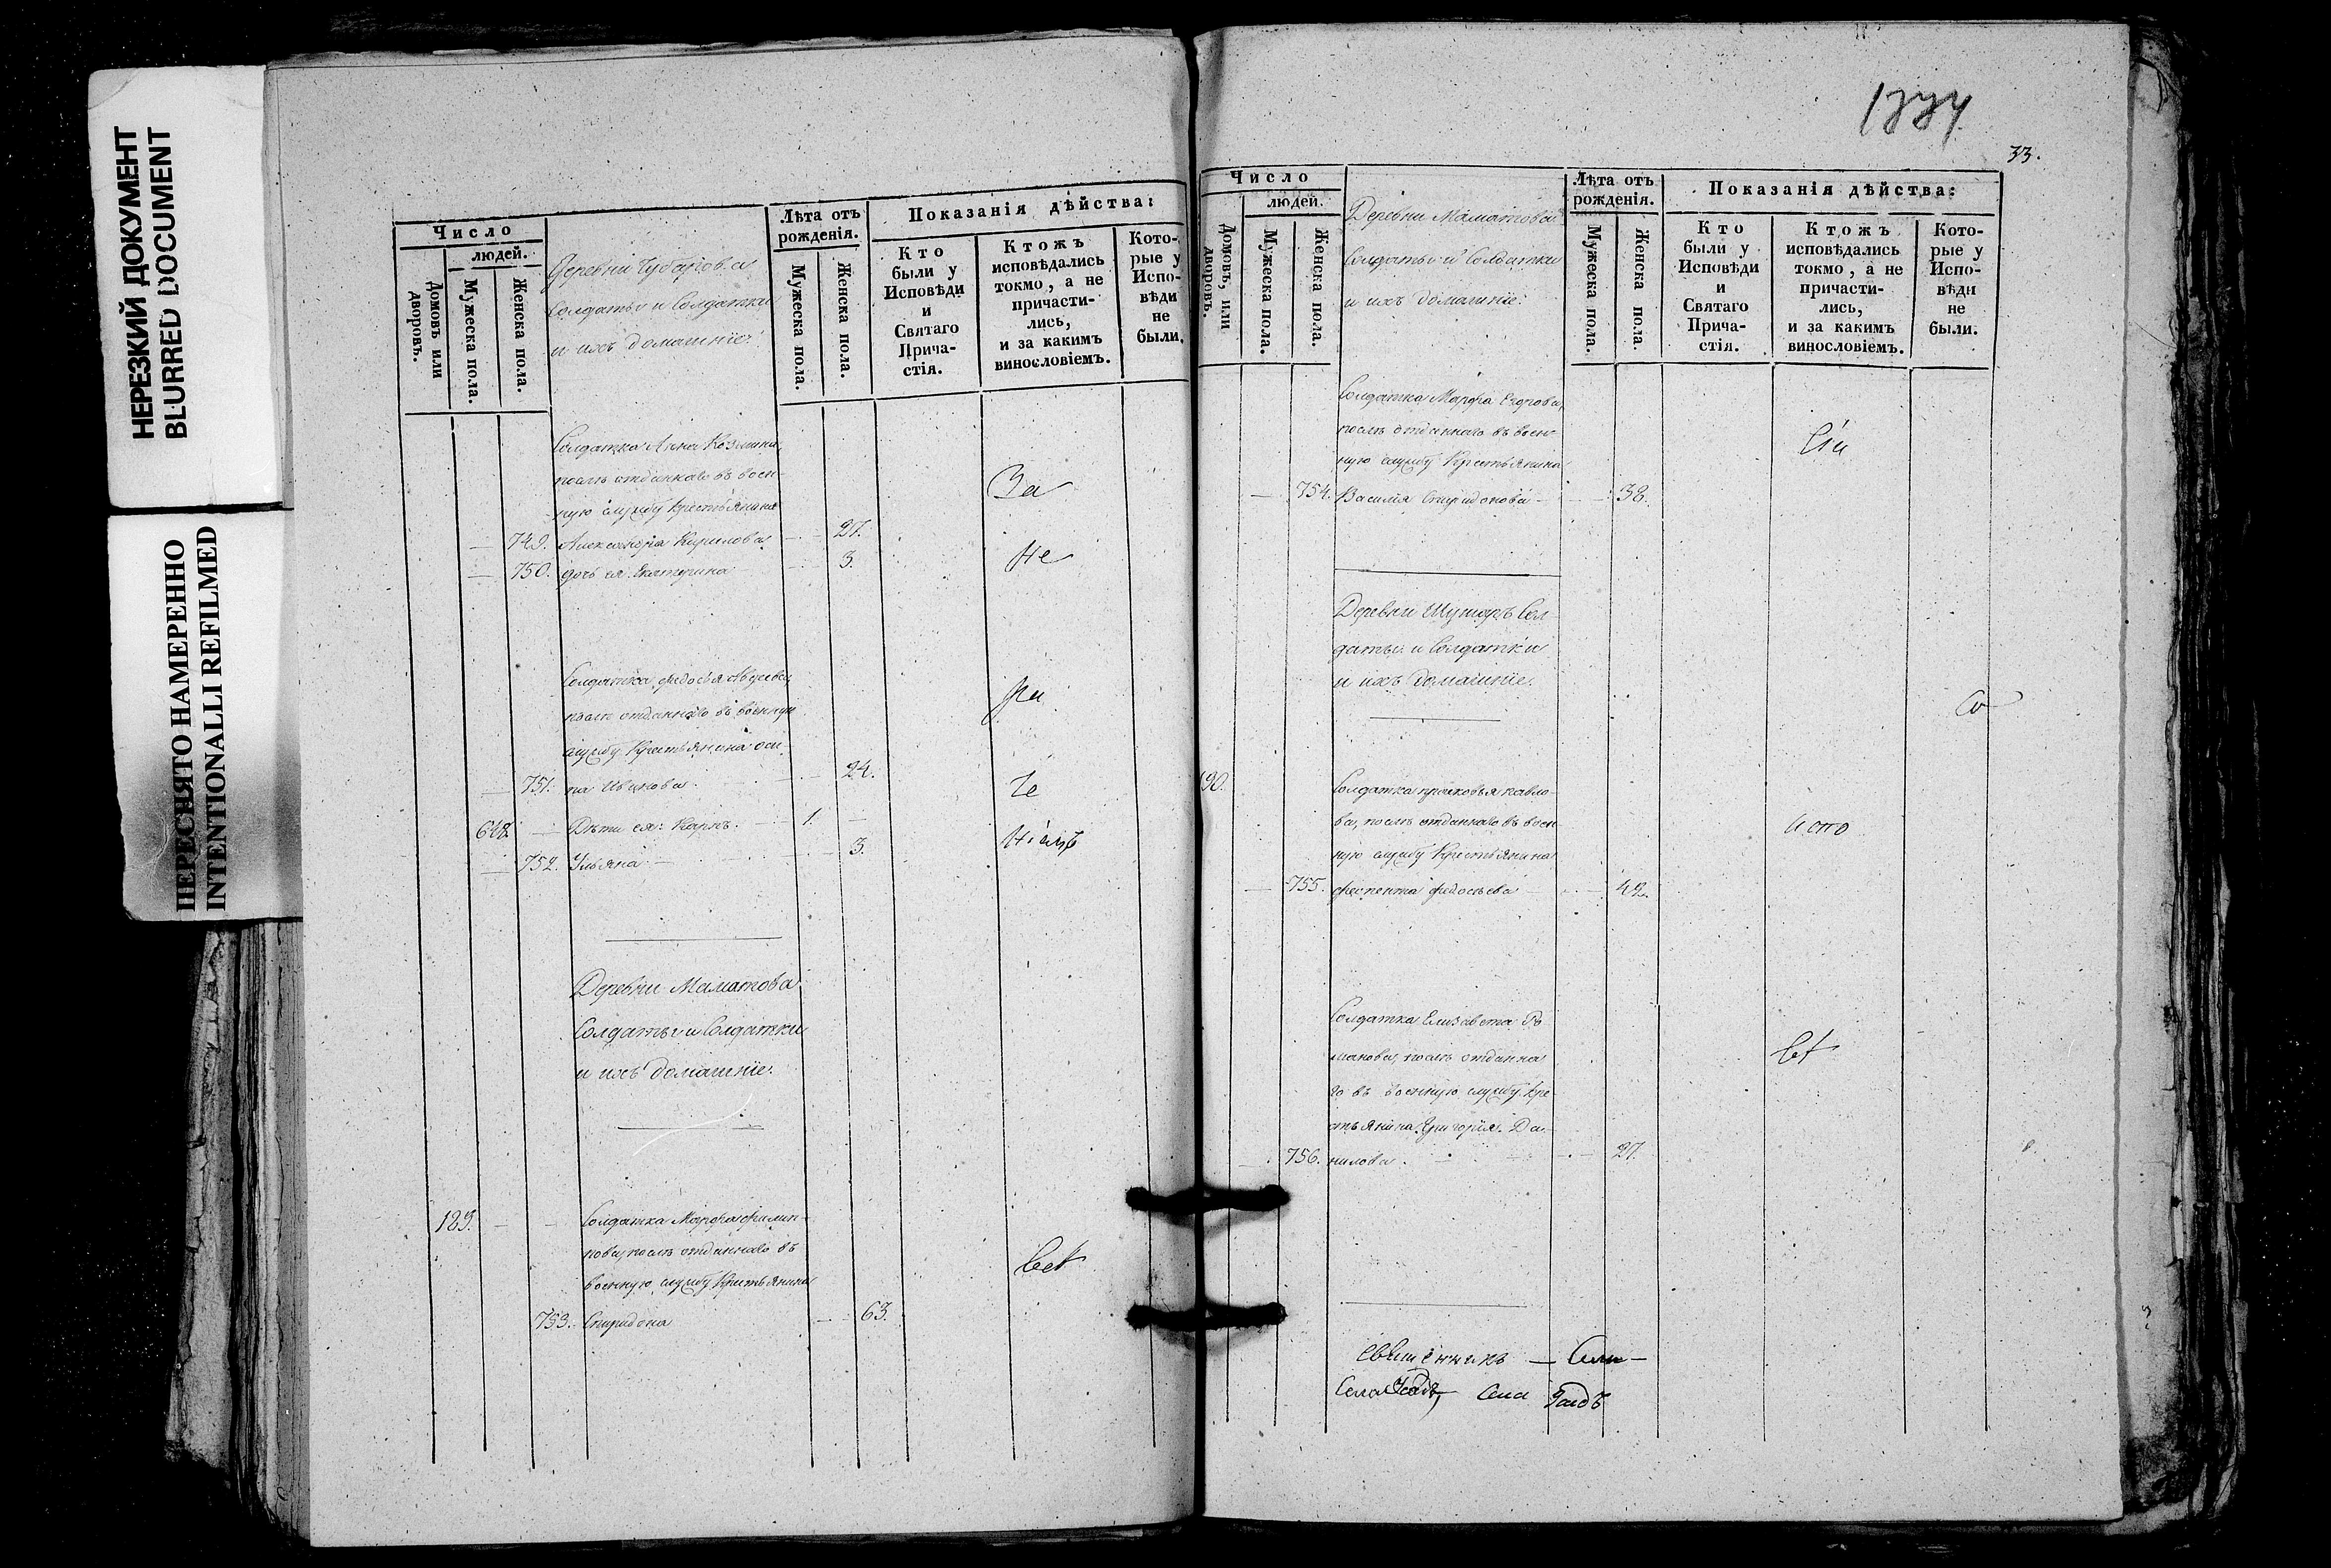 НЕРЕЗКИЙ ДОКУМЕНТ
BLURRED DOCUMENT
ПЕРЕСНЯТО НАМЕРЕННО
INTENTIONALLI REFILMED
Число
людей.
Домовъ или дворовъ.
Мужеска пола.
Женска пола.
Деревни Чубарова
Солдаты и Солдатки
и ихъ домашніе:
Лѣта отъ рожденія.
Мужеска пола.
Женска пола.
Показанія дѣйства:
Кто были у Исповѣди и Святаго Прича-стія.
Ктожъ исповѣдались токмо, а не причасти-лись, и за какимъ винословіемъ.
Кото-рые у Испо-вѣди не были.
Солдатка Анна Козмина,
послѣ отданнаго въ воен-
За
ную службу Крестьянина
749. Александра Кирилова 27.
750. дочь ея Екатерина 3.
Не
Солдатка Федосья Авдеева,
послѣ отданнаго въ военную
службу Крестьянина Оси-
751. па Иванова 24.
648. Дѣти ея: Карпъ. 1.
752. Ульяна 3.
Деревни Маматова
Солдаты и Солдатки
и ихъ домашніе:
189. Солдатка Марфа Филип-
пова, послѣ отданнаго въ
военную службу Крестьянина
753. Спиридона 63.
1774
33.
Число
людей.
Домовъ, или дворовъ.
Мужеска пола.
Женска пола.
Деревни Маматова
Солдаты и Солдатки
и ихъ домашніе:
Лѣта отъ рожденія.
Мужеска пола.
Женска пола.
Показанія дѣйства:
Кто были у Исповѣди и Святаго Прича-стія.
Ктожъ исповѣдались токмо, а не причасти-лись, и за какимъ винословіемъ.
Кото-рые у Испо-вѣди не были.
Солдатка Марфа Егорова,
послѣ отданнаго въ воен-
ную службу Крестьянина
754. Василія Спиридонова 38.
Деревни Шушаръ Сол-
даты и Солдатки
и ихъ домашніе.
190. Солдатка Прасковья Павло-
ва, послѣ отданнаго въ воен
ную службу Крестьянина
755. Ферпента Федосьева 42.
Солдатка Елизавета Ро
манова, послѣ отданна
го въ военную службу Кре
стьянина Григорія Да-
756. нилова 27.
Священникъ
Села Села